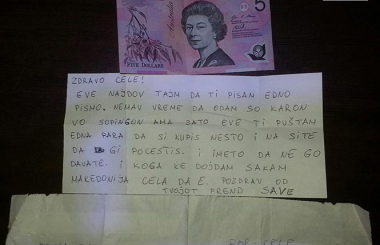 Australia
5
FIVE DOLLARS
ZDRAVO CELE!
EVE NAJDOV TAJM DA TI PISAN EDNO
PISMO. NEMAV VREME DA ODAM SO KARON
VO SOPINGON AMA ZATO EVE TI PUŠTAM
EDNA PARA DA SI KUPIS NESTO I NA SITE
DA GI POCESTIS. I IMETO DA NE GO
DAVATE. I KOGA KE DOJDAM SAKAM
MAKEDONIJA CELA DA E. POZDRAV OD
TVOJOT FREND SAVE